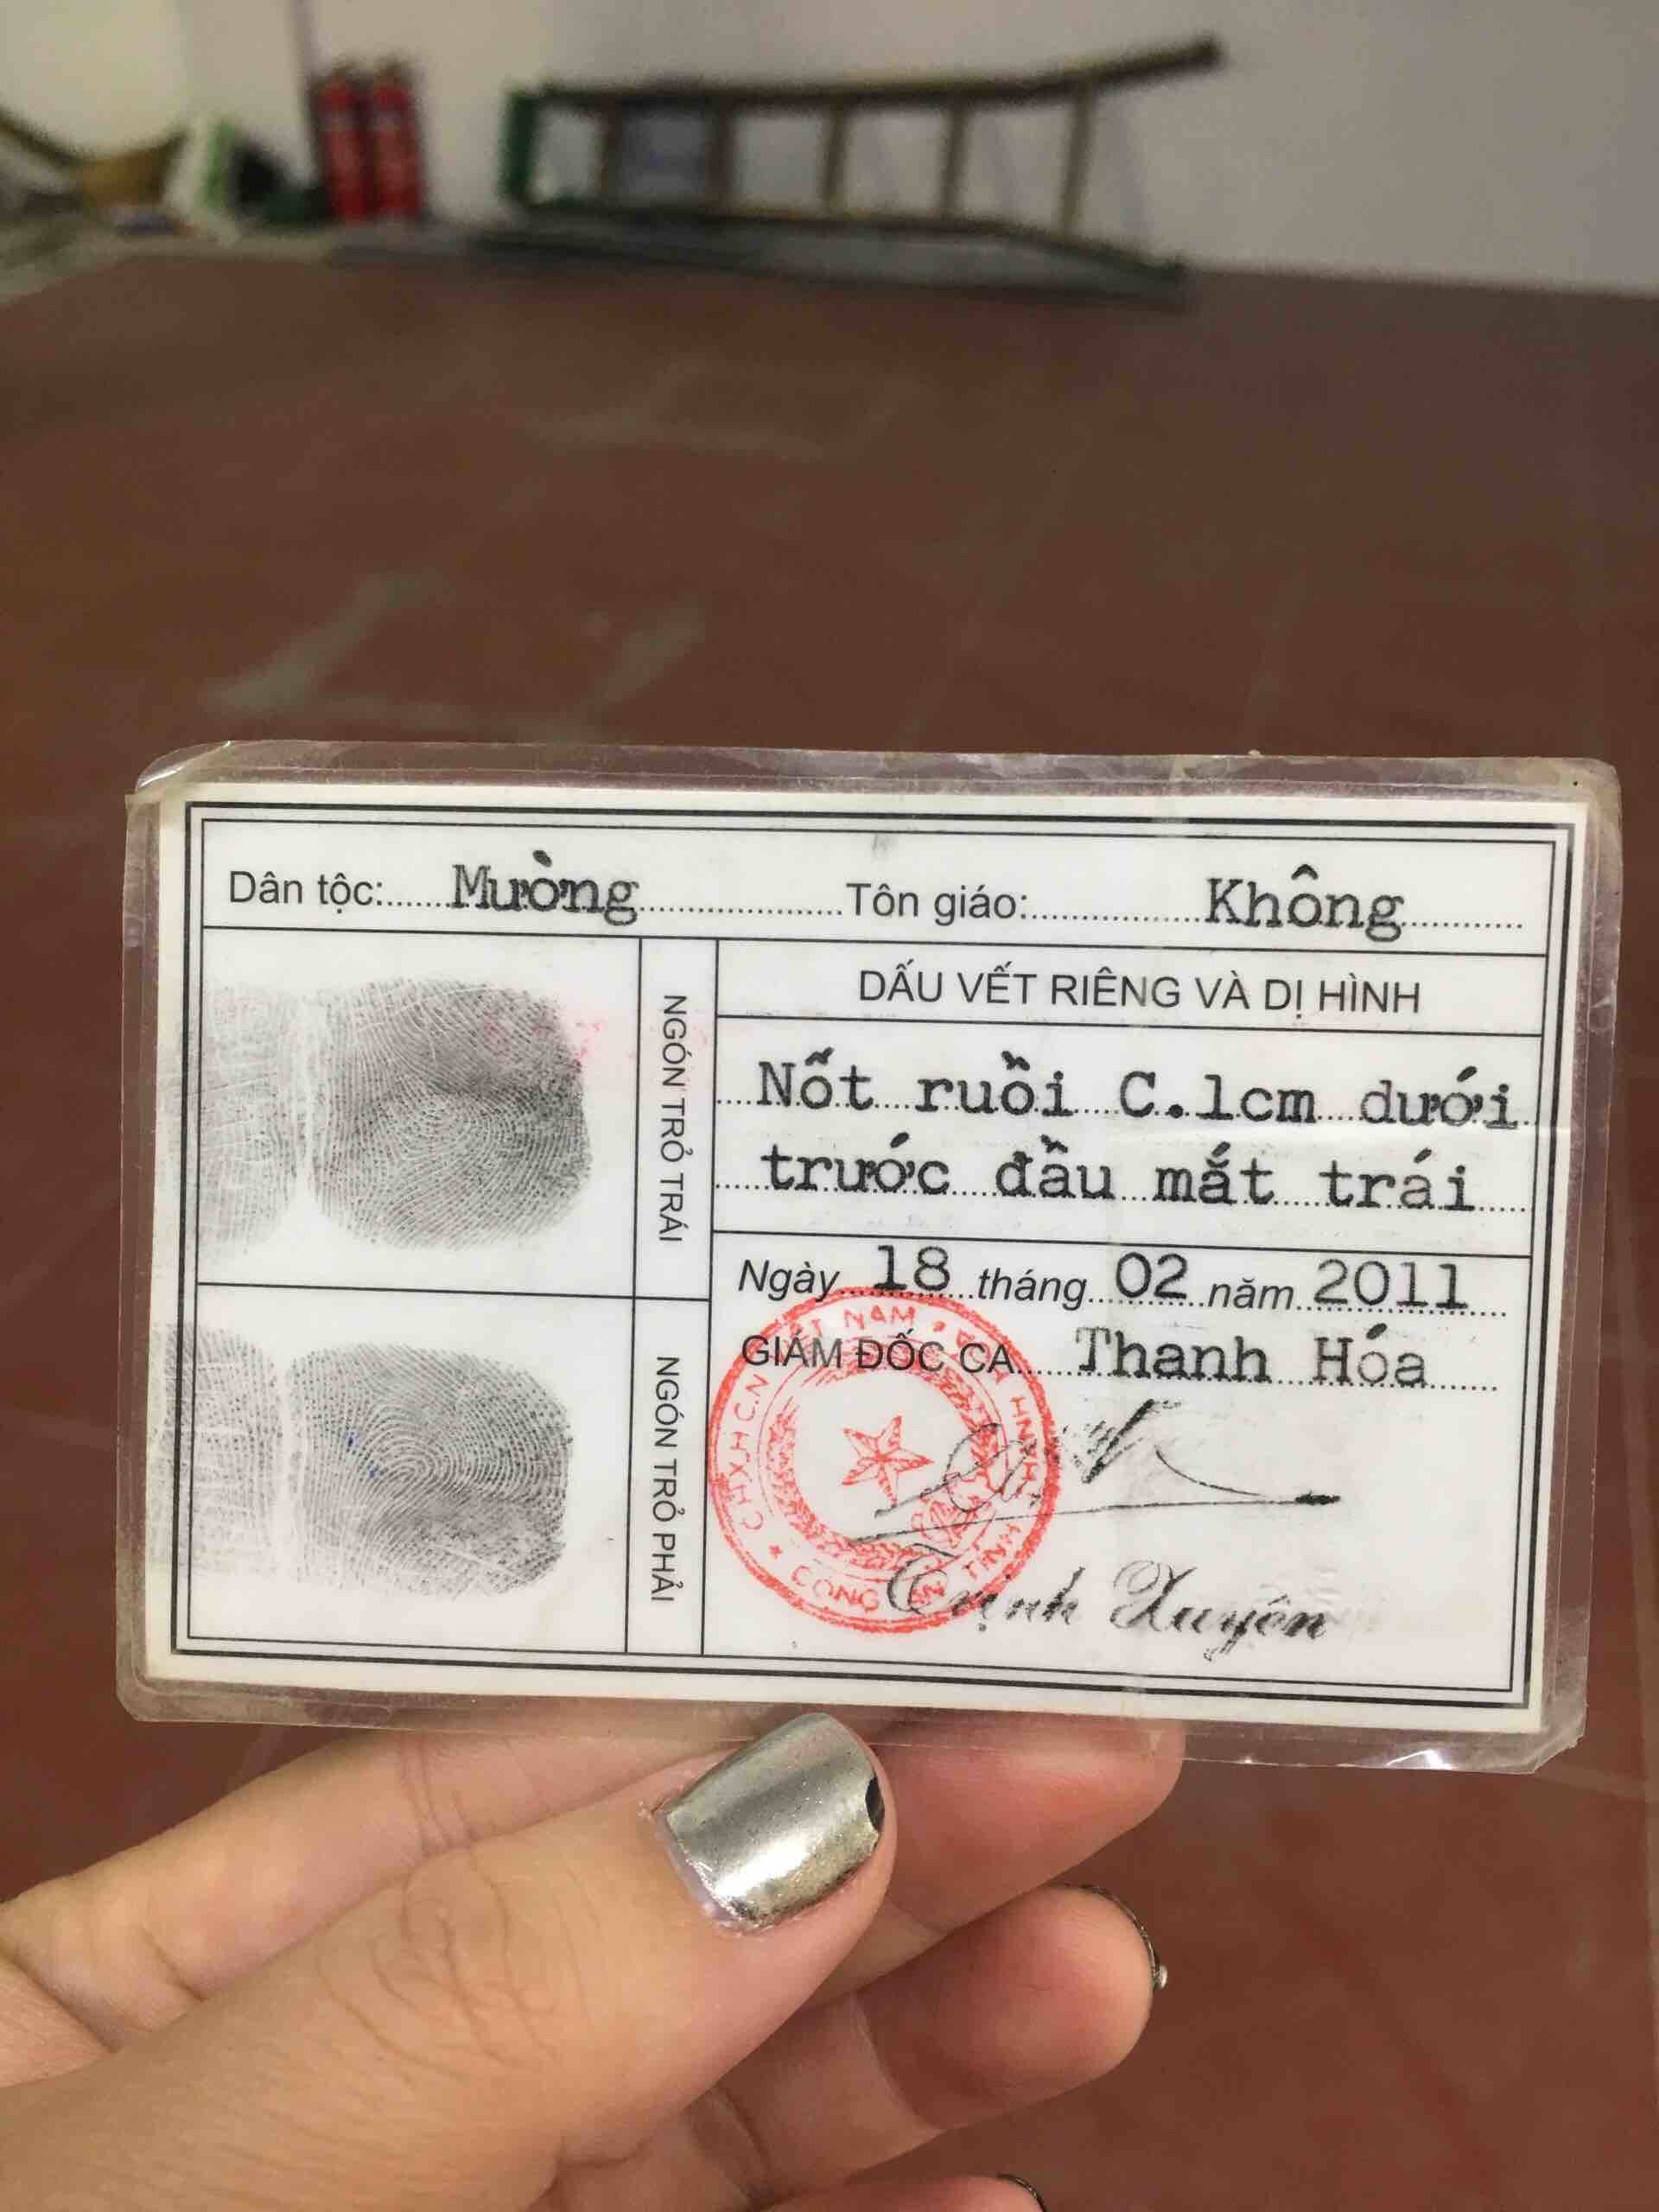 Dân tộc: Mường Tôn giáo: Không
NGÓN TRỎ TRÁI
NGÓN TRỎ PHẢI
DẤU VẾT RIÊNG VÀ DỊ HÌNH
Nốt ruồi C.1cm dưới
trước đầu mắt trái
Ngày 18 tháng 02 năm 2011
GIÁM ĐỐC CA Thanh Hóa
C.H.X.H.C.N VIỆT NAM
CÔNG AN TỈNH THANH HÓA
Trịnh Xuyên